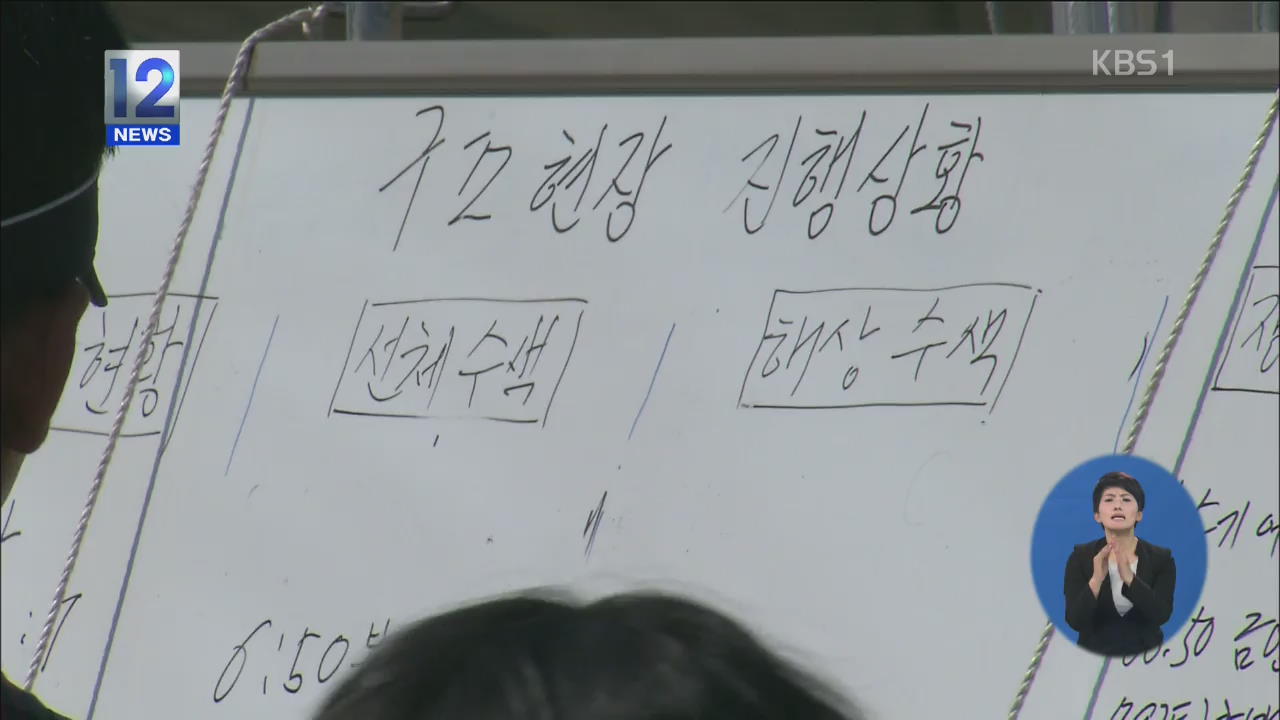 12
NEWS
KBS1
구조현장 진행상황
현황
선체수색
해상수색
6:50